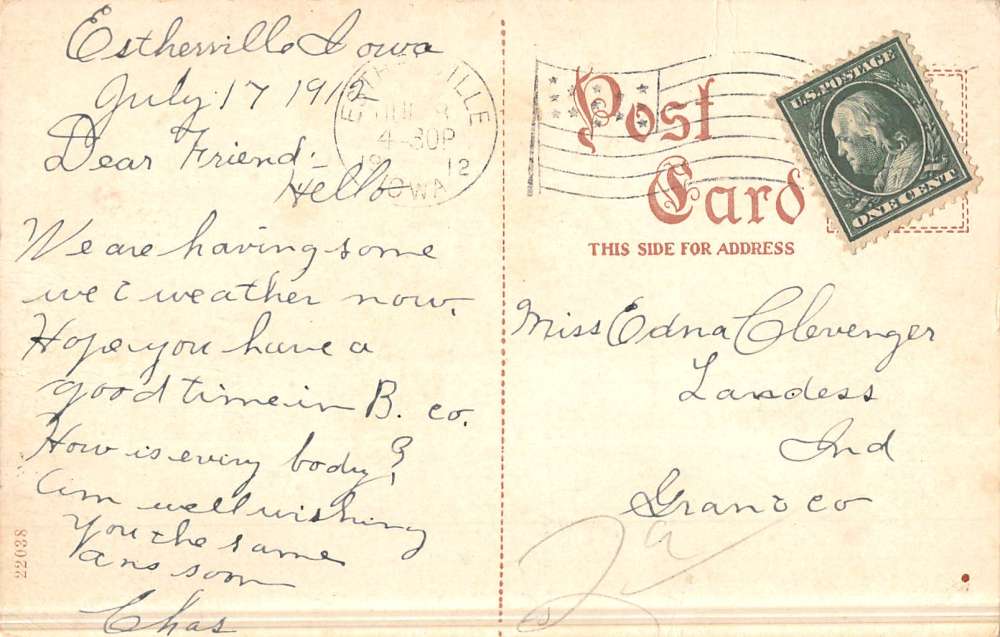 Estherville Iowa
July 17 1912
Dear Friend:-
Hello
We are having some
wet weather now.
Hope you have a
good time in B. co.
How is every body?
Am well wishing
you the same
ans soon
Chas
22038
ESTHERVILLE
JUL 
4-30P
1912
IOWA
Post
Card
THIS SIDE FOR ADDRESS
U.S. POSTAGE
ONE CENT
Miss Edna Clevenger
Landess
Ind
Grant co